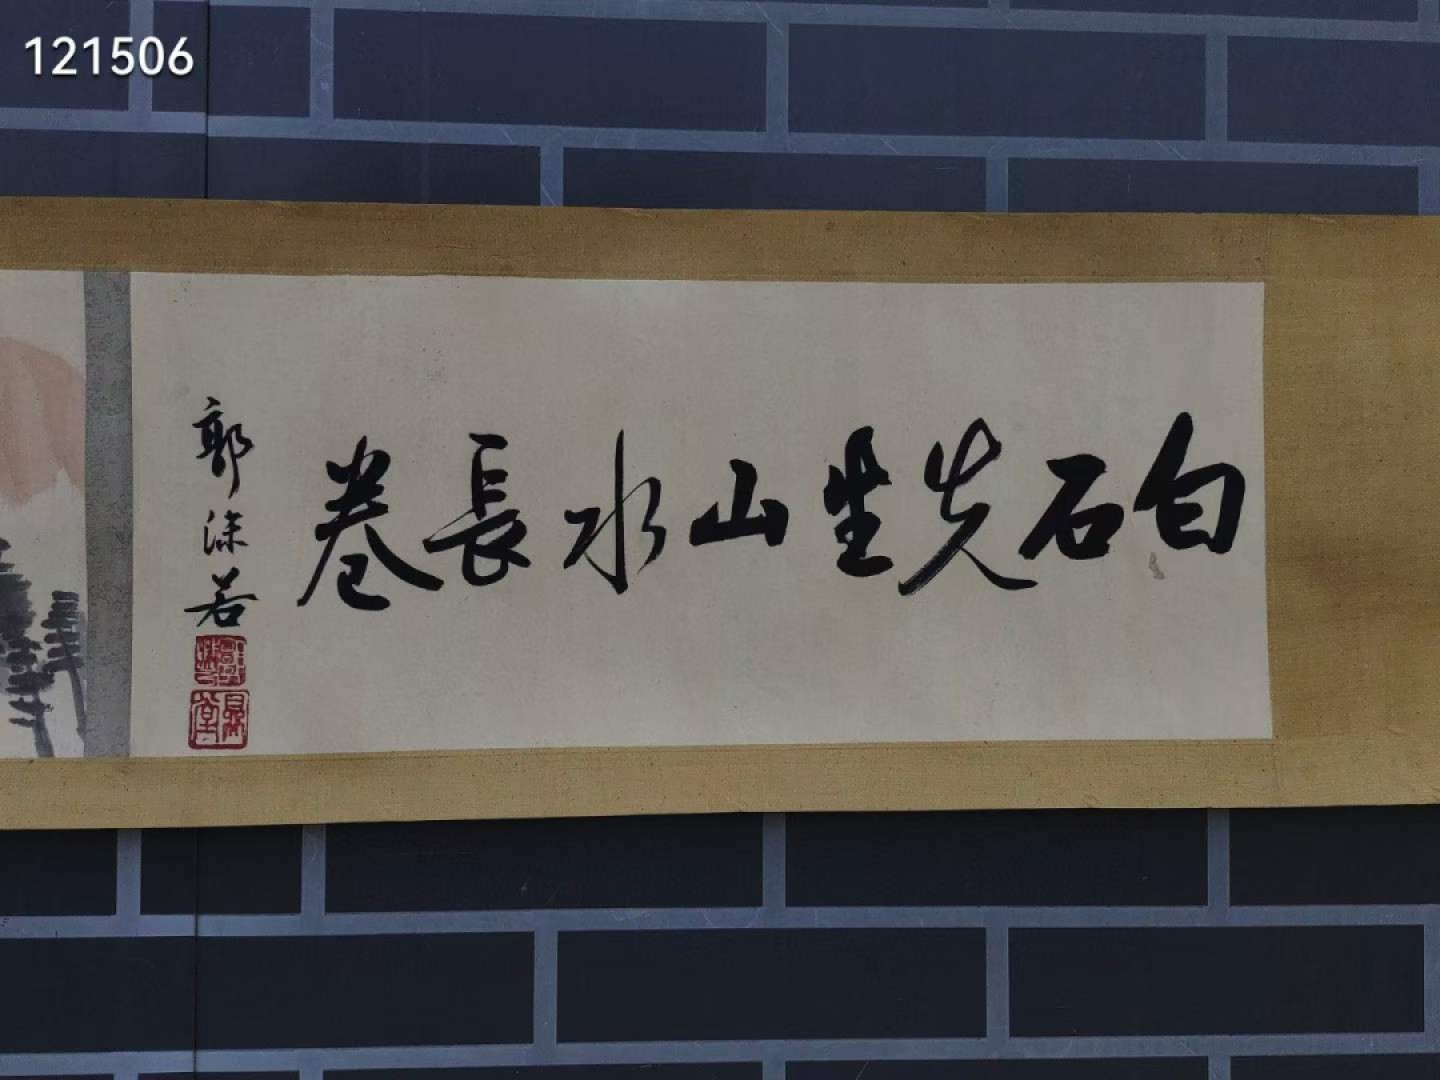 121506
白石先生山水長卷
郭沫若